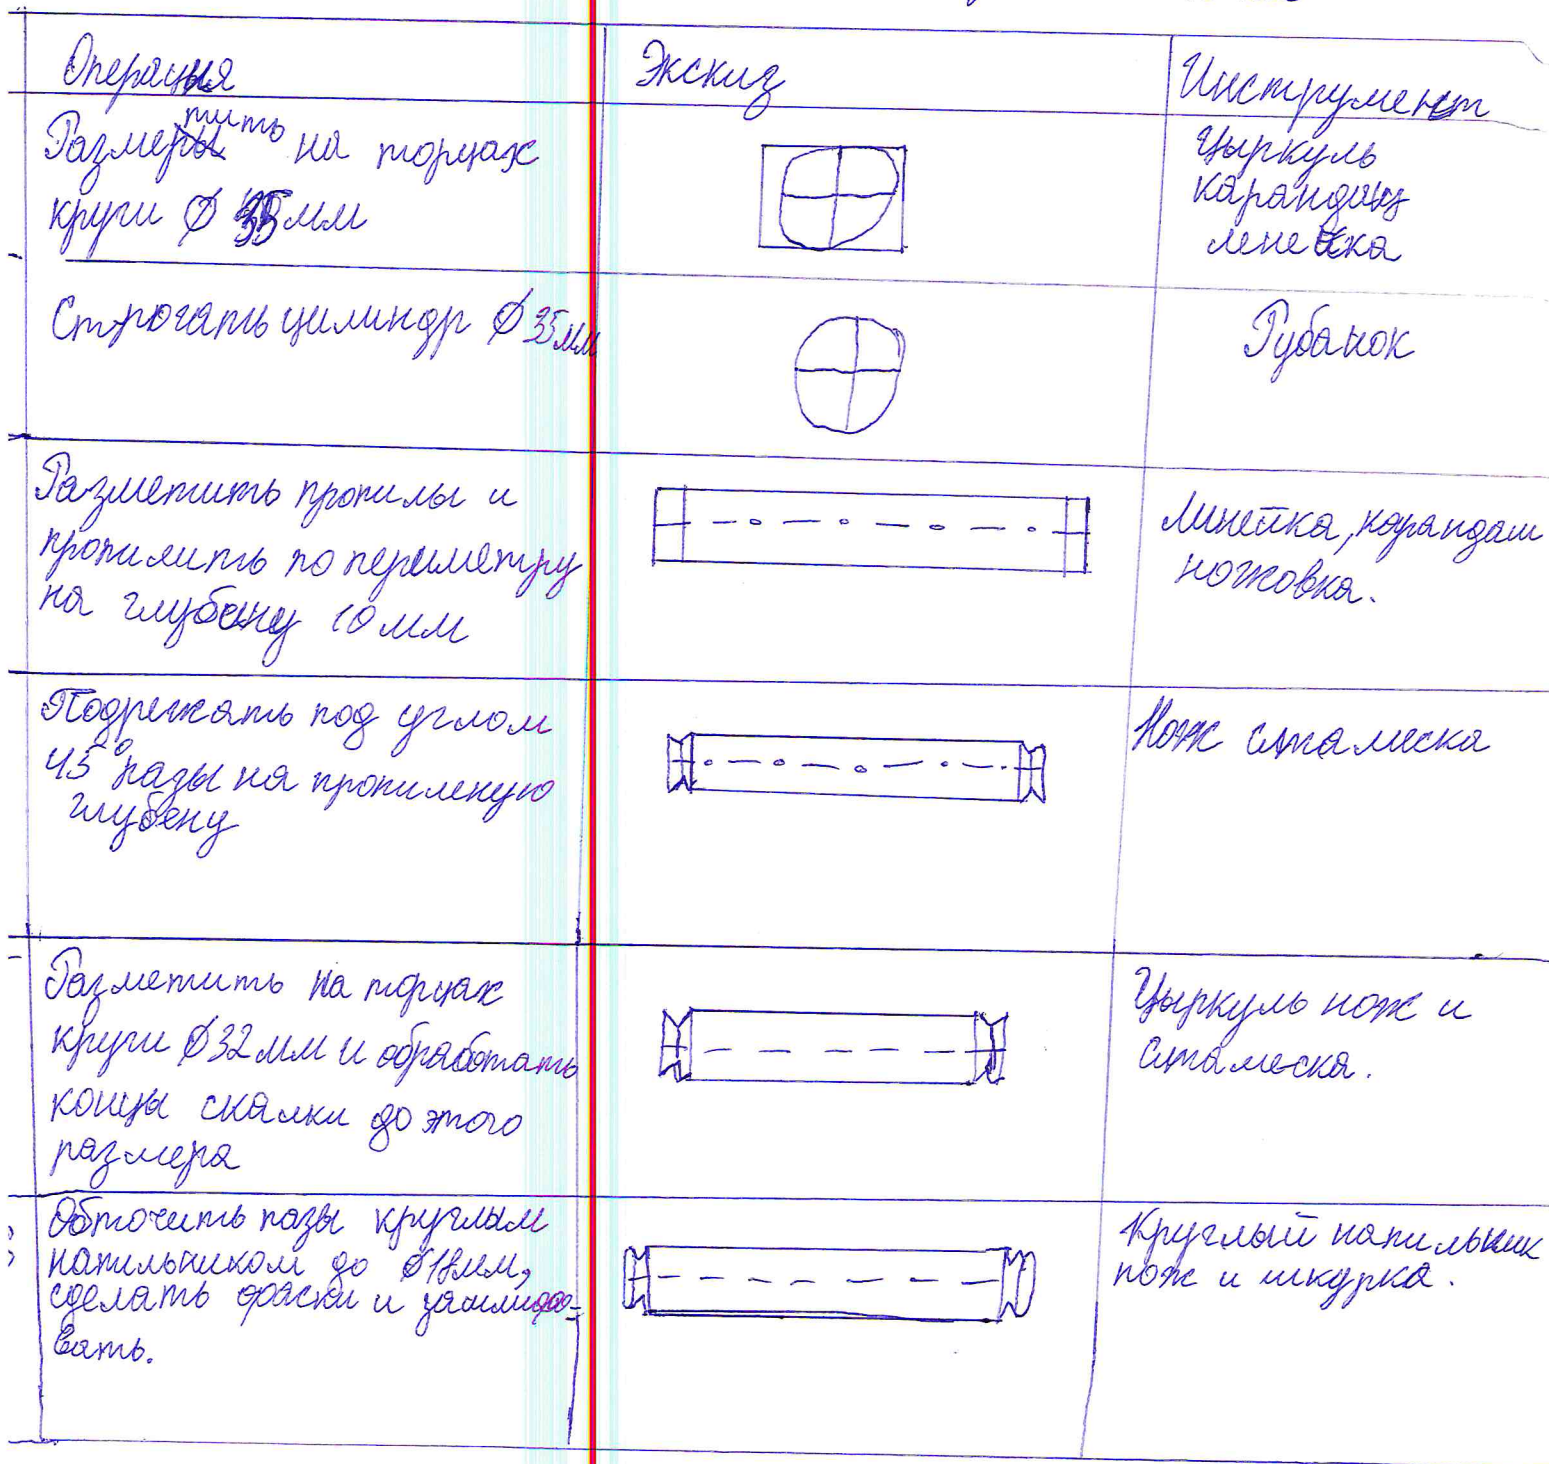 Операция
Экскиз
Инструмент
Разметить на торцах
круги Ø 35 мм
Цыркуль
карандаш
линейка
Строгать цилиндр Ø 35 мм
Рубанок
Разметить пропилы и
пропилить по периметру
на глубину 10 мм
Линейка, карандаш
ножовка.
Подрежать под углом
45° пазы на пропиленую
глубену
Нож стамеска
Разметить на торцах
круги Ø32 мм и обработать
концы скалки до этого
размера
Цыркуль нож и
стамеска.
Обточить пазы круглым
напильником до Ø18мм,
сделать фаски и зашлифо-
вать.
Круглый напильник
нож и шкурка.